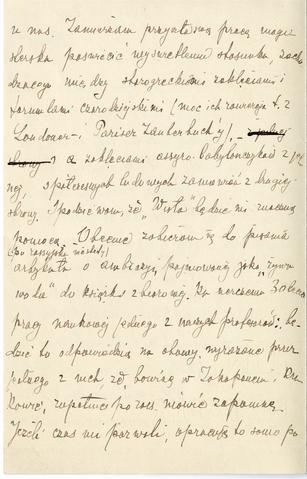 u nas. Zamierzam przyszłą swą pracę magi-
sterską poświęcić wyświetleniu stosunku, zach-
dzącego między starogreckiemi zaklęciami i
formułami czarodziejskimi (moc ich zawiera t. z
Londoner- i Pariser Zauberbuch'y),
a zaklęciami assyro-babylońskiemi z je-
nej, społecznych ludowych zamówień z drugiej
strony. Spodziewam, że „Wisła" będzie mi znaczną
pomocą. Obecnie zabieram się do pisania
(po rosyjsku niestety)
artykułu o ambrozji pojmowanej jako „żywa
woda" do książki zbiorowej. Na uczczenie 30 lecia
pracy naukowej jednego z naszych profesorów: bę-
dzie to odpowiedzią na obawy, wyrażone przez
jednego z nich, że, bawiąc w Zakopanem i Kra-
kowie, zupełnie po ros. mówić zapomnę.
Jeżeli czas mi pozwoli, opracuję to samo po